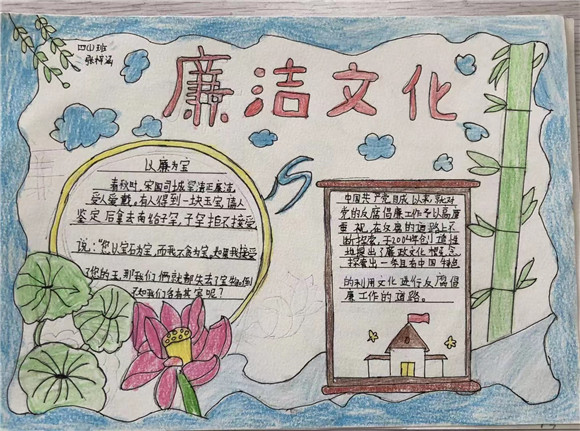 四(1)班
廉洁文化
以廉为宝
春秋时,宋国司城子罕清正廉洁,
受人爱戴。有人得到一块玉宝,请人
鉴定后拿去献给子罕,子罕拒不接受,
说:"您以宝石为宝,而我以不贪为宝。如果我接受
了您的玉,那我们俩就都失去了宝物。倒
不如我们各有其宝呢?"
中国共产党自成以来,就对
党的反腐倡廉工作予以高度
重视,在反腐的道路上不
断探索,于2004年创造性
地提出了廉政文化概念,
探索出一条具有中国特色
的利用文化进行反腐倡
廉工作的道路。